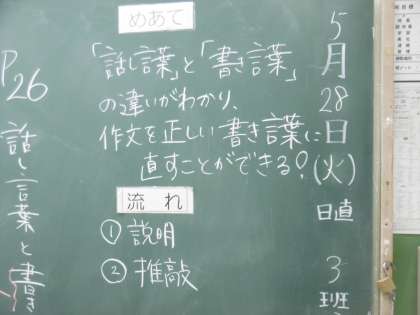 5月28日(火)
日直 3班
めあて
「話し言葉」と「書き言葉」
の違いがわかり、
作文を正しい書き言葉に
直すことができる?
流れ
①説明
②推敲
P26
話し言葉と書き